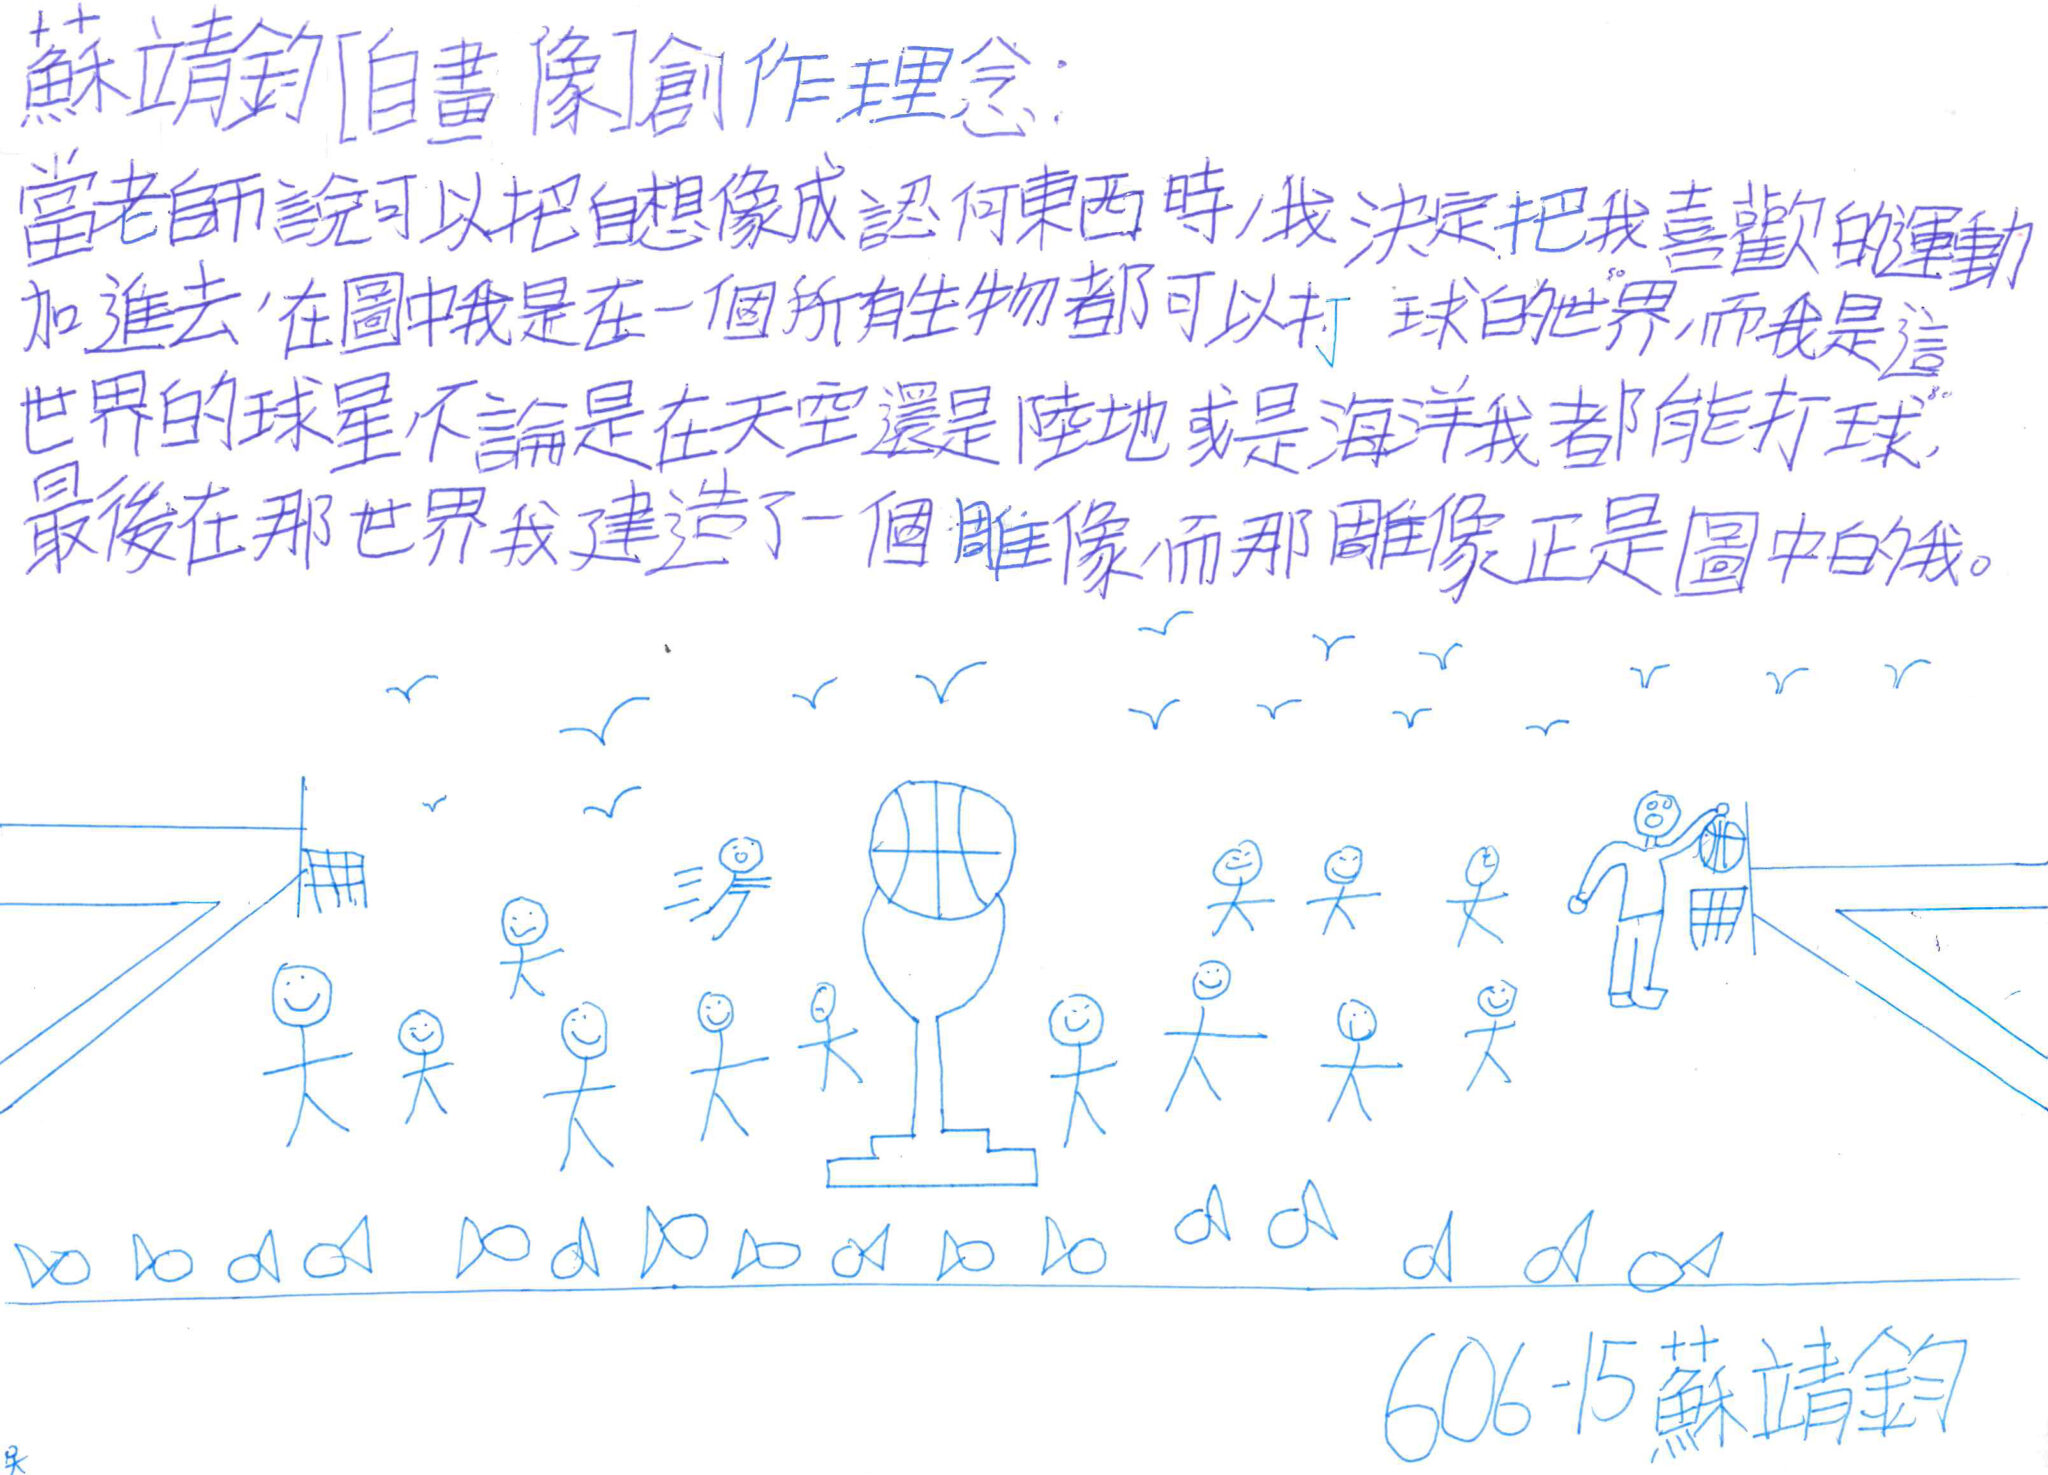 蘇靖鈞[自畫像]創作理念:
當老師說可以把自想像成認何東西時,我決定把我喜歡的運動
加進去,在圖中我是在一個所有生物都可以打球的世界,而我是這
世界的球星不論是在天空還是陸地或是海洋我都能打球,
最後在那世界我建造了一個雕像,而那雕像正是圖中的我。
606-15蘇靖鈞